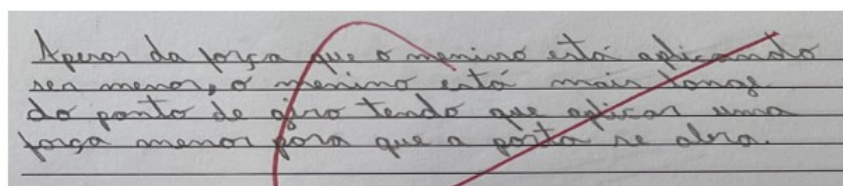 Apesar da força que o menino está aplicando
ser menor, o menino está mais longe
do ponto de giro tendo que aplicar uma
força menor para que a porta se abra.